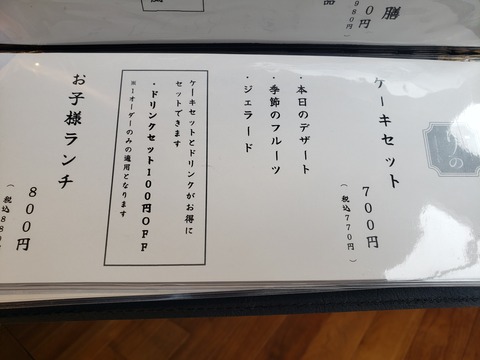 ケーキセット
700円
(税込770円)
・本日のデザート
・季節のフルーツ
・ジェラード
ケーキセットとドリンクがお得に
セットできます
・ドリンクセット100円OFF
※1オーダーのみの適用となります
お子様ランチ
800円
(税込88
膳
0円
980円)
品